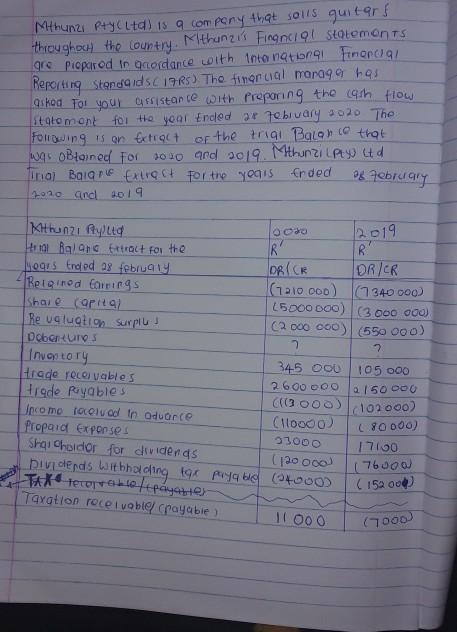 Mthunzi Pty(Ltd) is a company that sells guitars
throughout the country. Mthunzi's Financial statements
are prepared in accordance with International Financial
Reporting standards (IFRS). The financial manager has
asked for your assistance with preparing the cash flow
statement for the year Ended 28 February 2020 The
Following is an Extract of the trial Balance that
was obtained for 2020 and 2019. Mthunzi (Pty) Ltd
Trial Balance Extract for the years Ended 28 February
2020 and 2019
Mthunzi Pty/Ltd 2020 2019
trial Balane Extract for the R' R'
years Ended 28 february DR/CR DR/CR
Retained Earnings (7210 000) (7340 000)
share capital (5000 000) (3 000 000)
Revaluation surplus (2 000 000) (550 000)
Debentures ? ?
Inventory 345 000 105 000
trade receivables 2600 000 2150 000
trade payables (113 000) (102 000)
Income received in advance (110000) (80 000)
Prepaid Expenses 23000 17100
Shareholder for dividends (120 000) (76 000)
Dividends withholding tax payable (24000) (15200)
TAX receivable/(payable)
Taxation receivable/(payable) 11 000 (7000)